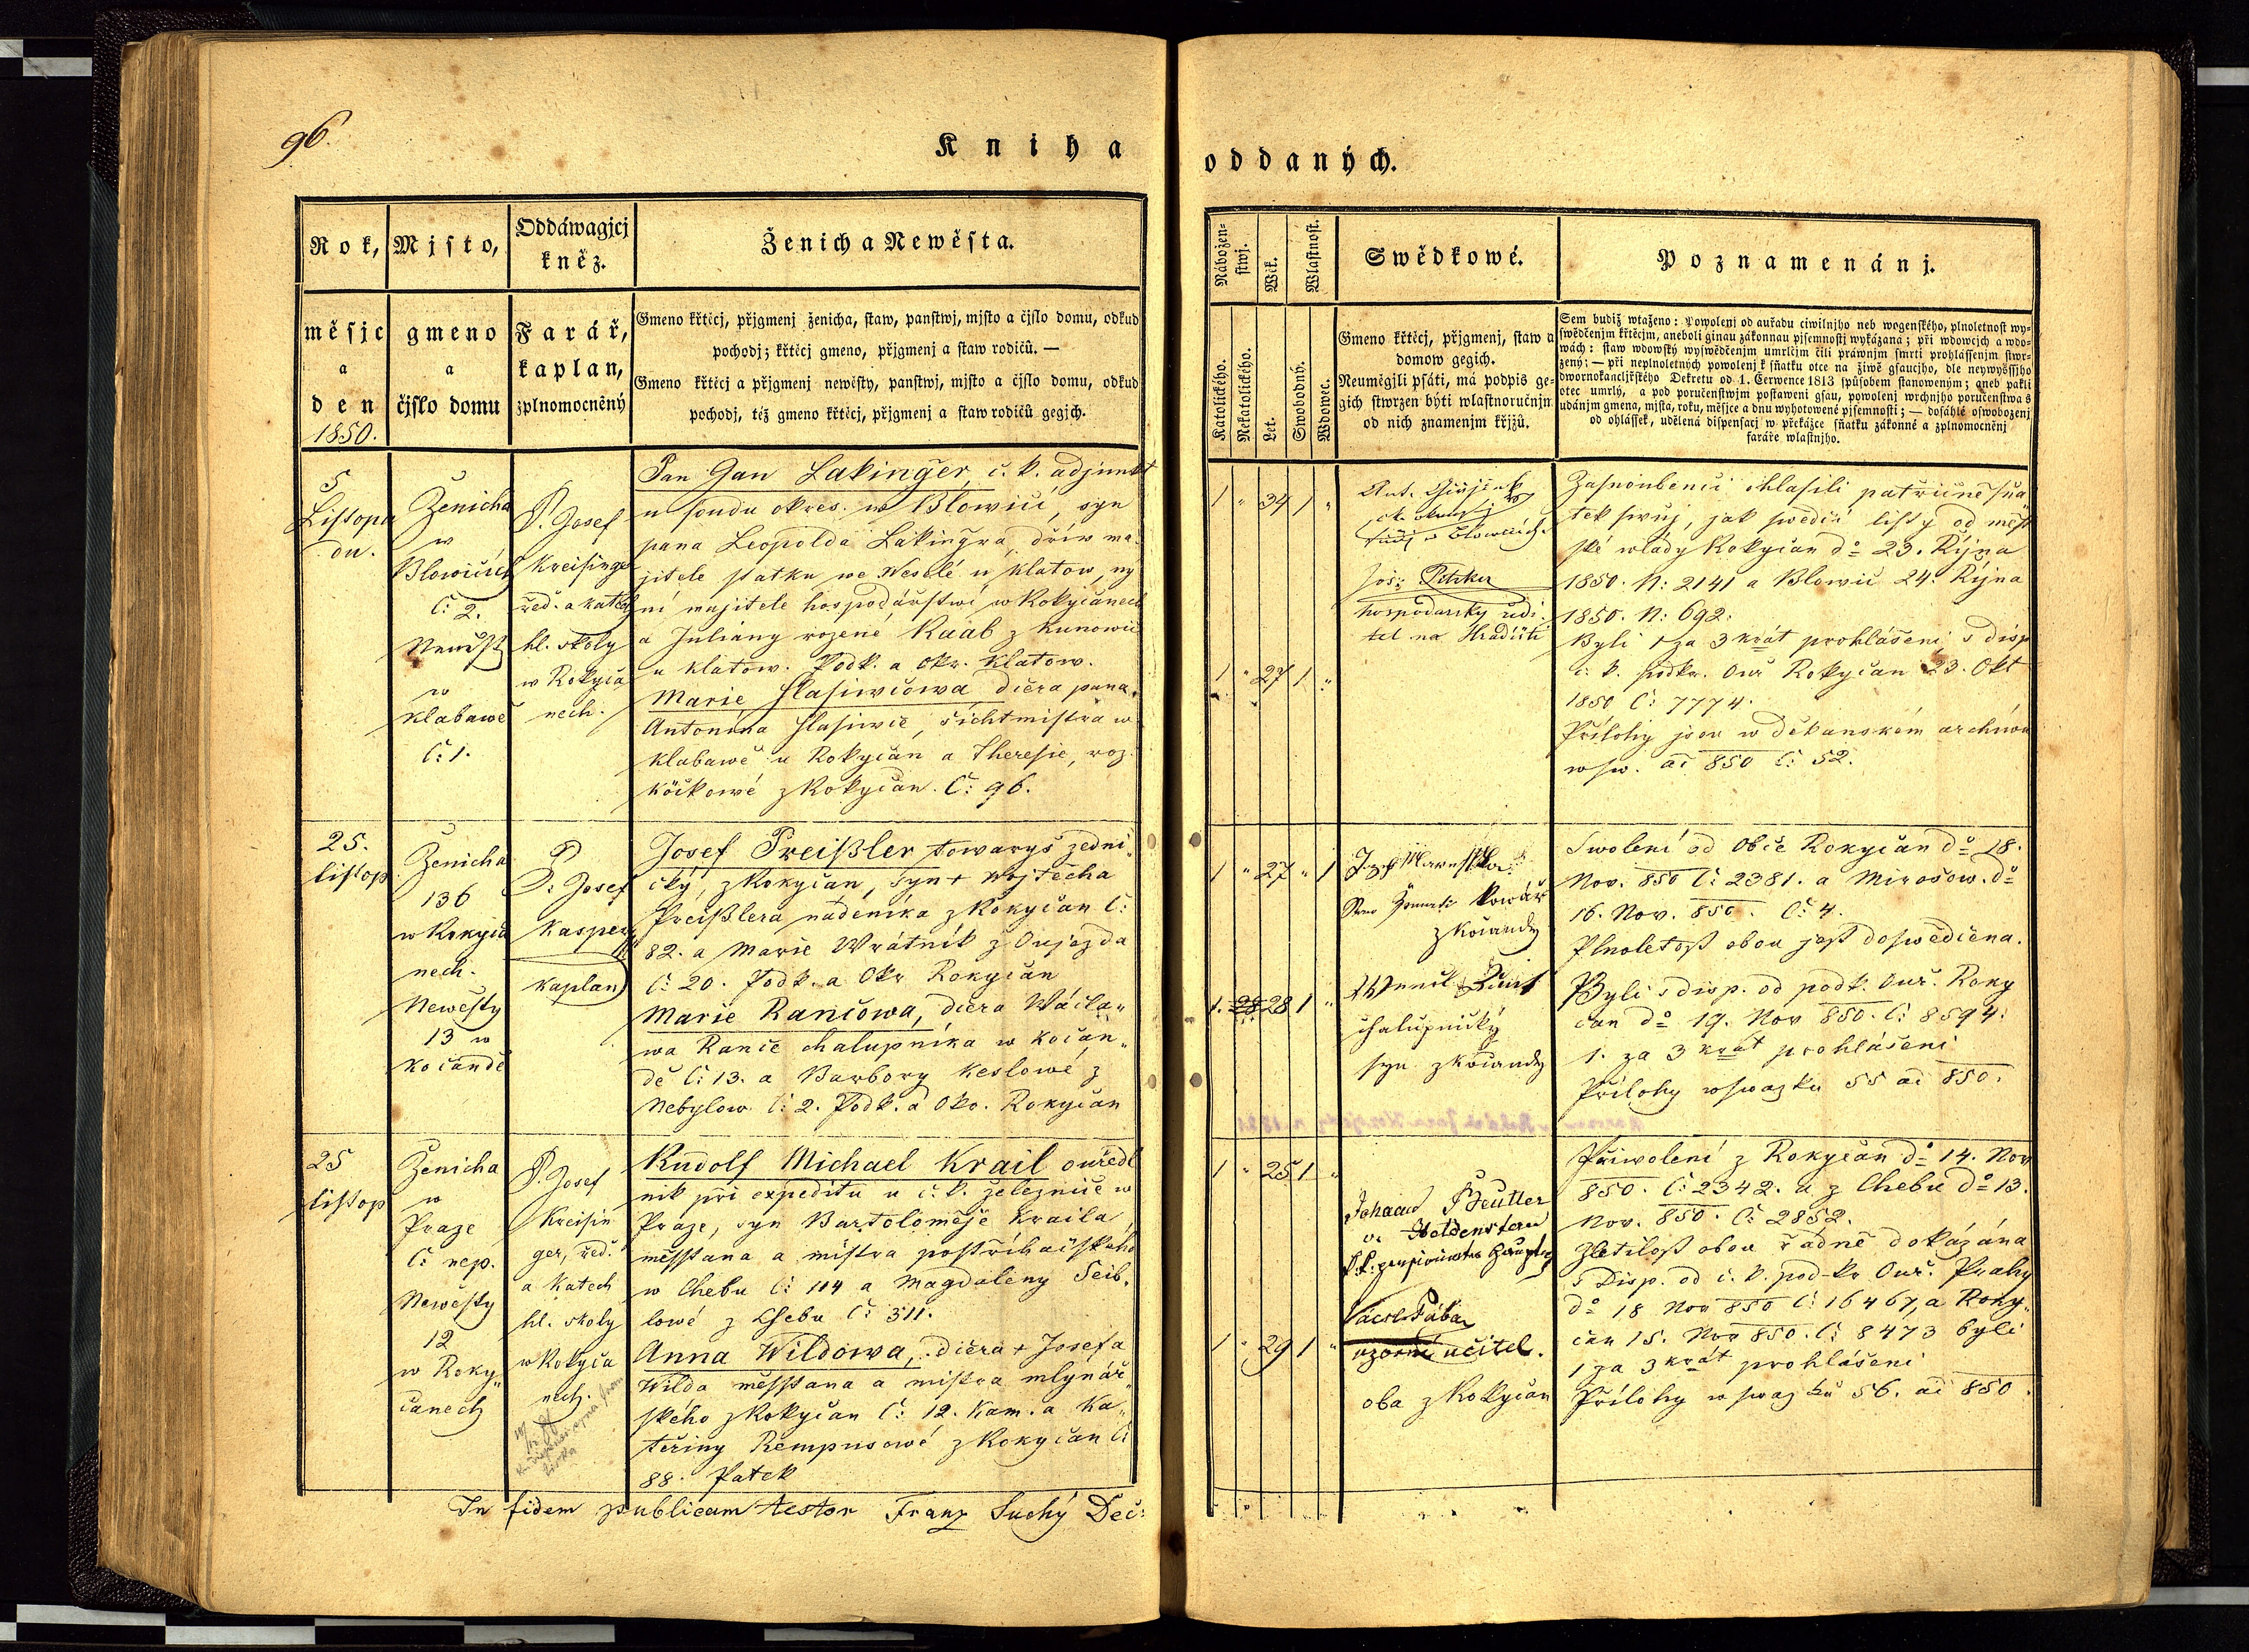 96.
Kniha
oddaných.
Rok,
Mjsto,
Oddáwagjcj
kněz.
Ženich a Newěsta.
měsjc
a
den
1850.
gmeno
a
čjslo domu
Farář,
kaplan,
zplnomocněný
Gmeno křtěcj, přjgmenj ženicha, staw, panstwj, mjsto a čjslo domu, odkud
pochodj; křtěcj gmeno, přjgmenj a staw rodičů. —
Gmeno křtěcj a přjgmenj newěsty, panstwj, mjsto a čjslo domu, odkud
pochodj, též gmeno křtěcj, přjgmenj a staw rodičů gegjch.
Nábožen-
stwj.
Wěk.
Wlastnost.
Swědkowé.
Poznamenánj.
Katolického.
Nekatolického.
Let.
Swobodný.
Wdowec.
Gmeno křtěcj, přjgmenj, staw a
domow gegich.
Neuměgjli psáti, má podpis ge-
gich stwrzen býti wlastnoručnjm
od nich znamenjm křjžů.
Sem budiž wtaženo: Powolenj od auřadu ciwilnjho neb wogenského, plnoletnost wy-
swědčenjm křtěcjm, aneboli ginau zákonnau pjsemnostj wykázaná; při wdowcjch a wdo-
wách: staw wdowský wyswědčenjm umrlčjm čili práwnjm smrti prohlássenjm stwr-
zený; — při neplnoletných powolenj k sňatku otce na žiwě gsaucjho, dle neywyššjho
dwornokancljřského Dekretu od 1. Čerwence 1813 spůsobem stanoweným; aneb pakli
otec umrlý, a pod poručenstwjm postaweni gsau, powolenj wrchnjho poručenstwa s
udánjm gmena, mjsta, roku, měsjce a dnu wyhotowené pjsemnosti; — dosáhlé oswobozenj
od ohlássek, udělená dispensacj w překážce sňatku zákonné a zplnomocněnj
faráře wlastnjho.
5
Listopa
du.
Ženicha
w
Blowicích
Č: 2.
Newěst
w
Klabawě
č: 1.
P. Josef
Kreisinger
řed. a katech
hl. školy
w Rokyča
nech.
Pan Jan Lakinger, c. k. adjunkt
u soudu okres. w Blowicí, syn
pana Leopolda Lakingra, dřív ma-
jitele statku we Weselé u Klatow, ny
ní majitele hospodářstwí w Rokyčanech
a Juliany rozené Raab z Kunowic
u Klatow. Podk. a okr. Klatow.
Marie Hlasiwcowa dcera pana
Antonína Hlasiwec, šichtmistra w
Klabawě u Rokyčan a Theresie, roz.
Kočkowé z Rokyčan. Č: 96.
1 " 34 1 "
1 " 27 1 "
Jos:
hospodarsky ředi
tel na Hradišti
Zasnoubenci ohlasili patřičně sňa
tek swůj, jak swědčí listy od měst
ské wlády Rokyčan dº 23. Října
1850. N: 2141 a Blowic 24. Října
1850. N: 692.
Byli 1 za 3 krát prohlášeni s disp
c. k. podkr. Ouř Rokyčan 23. Okt
1850 Č: 7774.
Přílohy jsou w děkanském archiwu
w sw. ad 850 Č: 52.
25.
listop
Ženicha
136
w Rokyča
nech.
Newěsty
13 w
Kočandě
P. Josef
Kasper
kaplan
Josef Preißler towaryš zedni-
cký, z Rokyčan, syn + Wojtěcha
Preißlera nádeníka z Rokyčan Č:
82. a Marie Wrátník z Oujezda
Č: 20. Podk. a Okr Rokyčan
Marie Rancowa, dcera Wácla"
wa Rance chalupníka w Kočan"
dě Č: 13. a Barbory Keslowé z
Nebylow Č: 2. Podk. a Okr. Rokyčan
1 " 27 " 1
1. 28 28 1 "
kowář
z Kočandy
chalupnický
syn z Kočandy
Swolení od Obce Rokyčan dº 18.
Nov. 850 Č: 2381. a Mirošow. dº
16. Nov. 850. Č: 4.
Plnoletost obou jest doswědčena.
Byli s disp. od podk. Ouř. Roky
čan dº 19. Nov 850. Č: 8594.
1. za 3 krát prohlášeni
Přílohy w swazku 55 ad 850.
25
listop
Ženicha
w
Praze
Č: nep.
Newěsty
12
w Roky"
čanech
P. Josef
Kreisin
ger, řed.
a Katech
hl. školy
w Rokyča
nech.
Rudolf Michael Krail ouředl
nik při expeditu u c. k. železnice w
Praze, syn Bartoloměje Kraila
měsstana a mistra postřihačského
w Chebu Č: 114 a Magdaleny Seib"
lowé z Chebu Č: 311.
Anna Wildowa, dcera + Josefa
Wilda měsstana a mistra mlynář"
ského z Rokyčan Č: 12. Kam. a Ka"
teřiny Rempusowé z Rokyčan Č:
88. Patek
1 " 25 1 "
1 " 29 1 "
Johann Beutler
v. Heldenstern
učitel.
oba z Rokyčan
Přiwolení z Rokyčan dº 14. Nov
850. Č: 2342. a z Chebu dº 13.
Nov. 850. Č: 2852.
Zletilost obou řadně dokázána
s Disp. od c. k. pod-kr Ouř. Prahy
dº 18 Nov 850 Č: 16467, a Roky"
čan 15. Nov 850. Č: 8473 byli
1 za 3 krát prohlášeni
Přílohy w swazku 56. ad 850.
In fidem publicam testor Franz Suchý Dec: